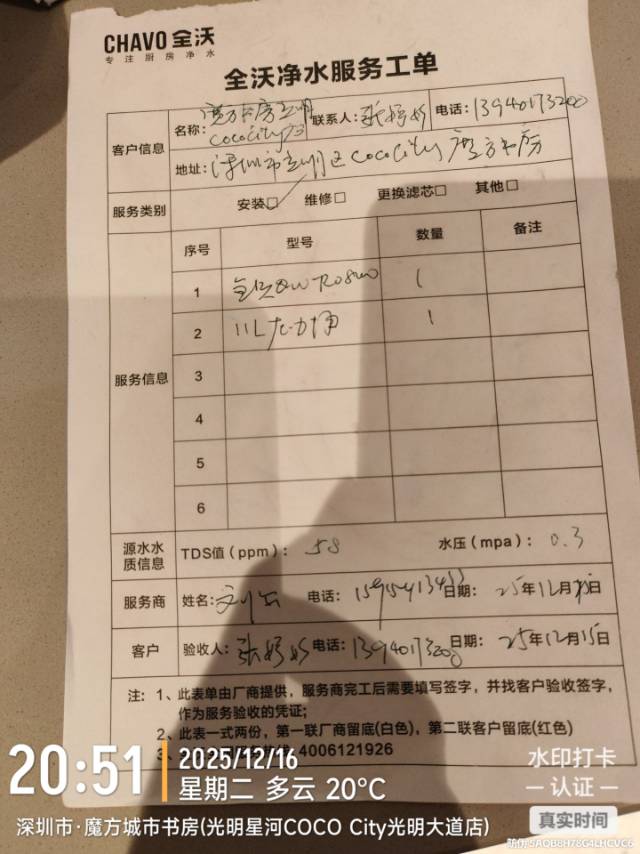 CHAVO 全沃
专注厨房净水
全沃净水服务工单
客户信息
名称: 魔方书房光明
cococity店
联系人: 张婷婷 电话:
地址: 深圳市光明区CocoCity魔方书房
服务类别 安装□ 维修□ 更换滤芯□ 其他□
服务信息
序号 型号 数量 备注
1 1
2 1
3
4
5
6
源水水质信息 TDS值（ppm）: 58 水压（mpa）: 0.3
服务商 姓名: 电话: 日期: 25年12月 日
客户 验收人: 张婷婷 电话: 日期: 25年12月15日
注: 1、此表单由厂商提供，服务商完工后需要填写签字，并找客户验收签字，
作为服务验收的凭证;
2、此表一式两份，第一联厂商留底(白色)，第二联客户留底(红色)
3、 4006121926
20:51
2025/12/16
星期二 多云 20°C
深圳市·魔方城市书房(光明星河COCO City光明大道店)
水印打卡
认证
真实时间